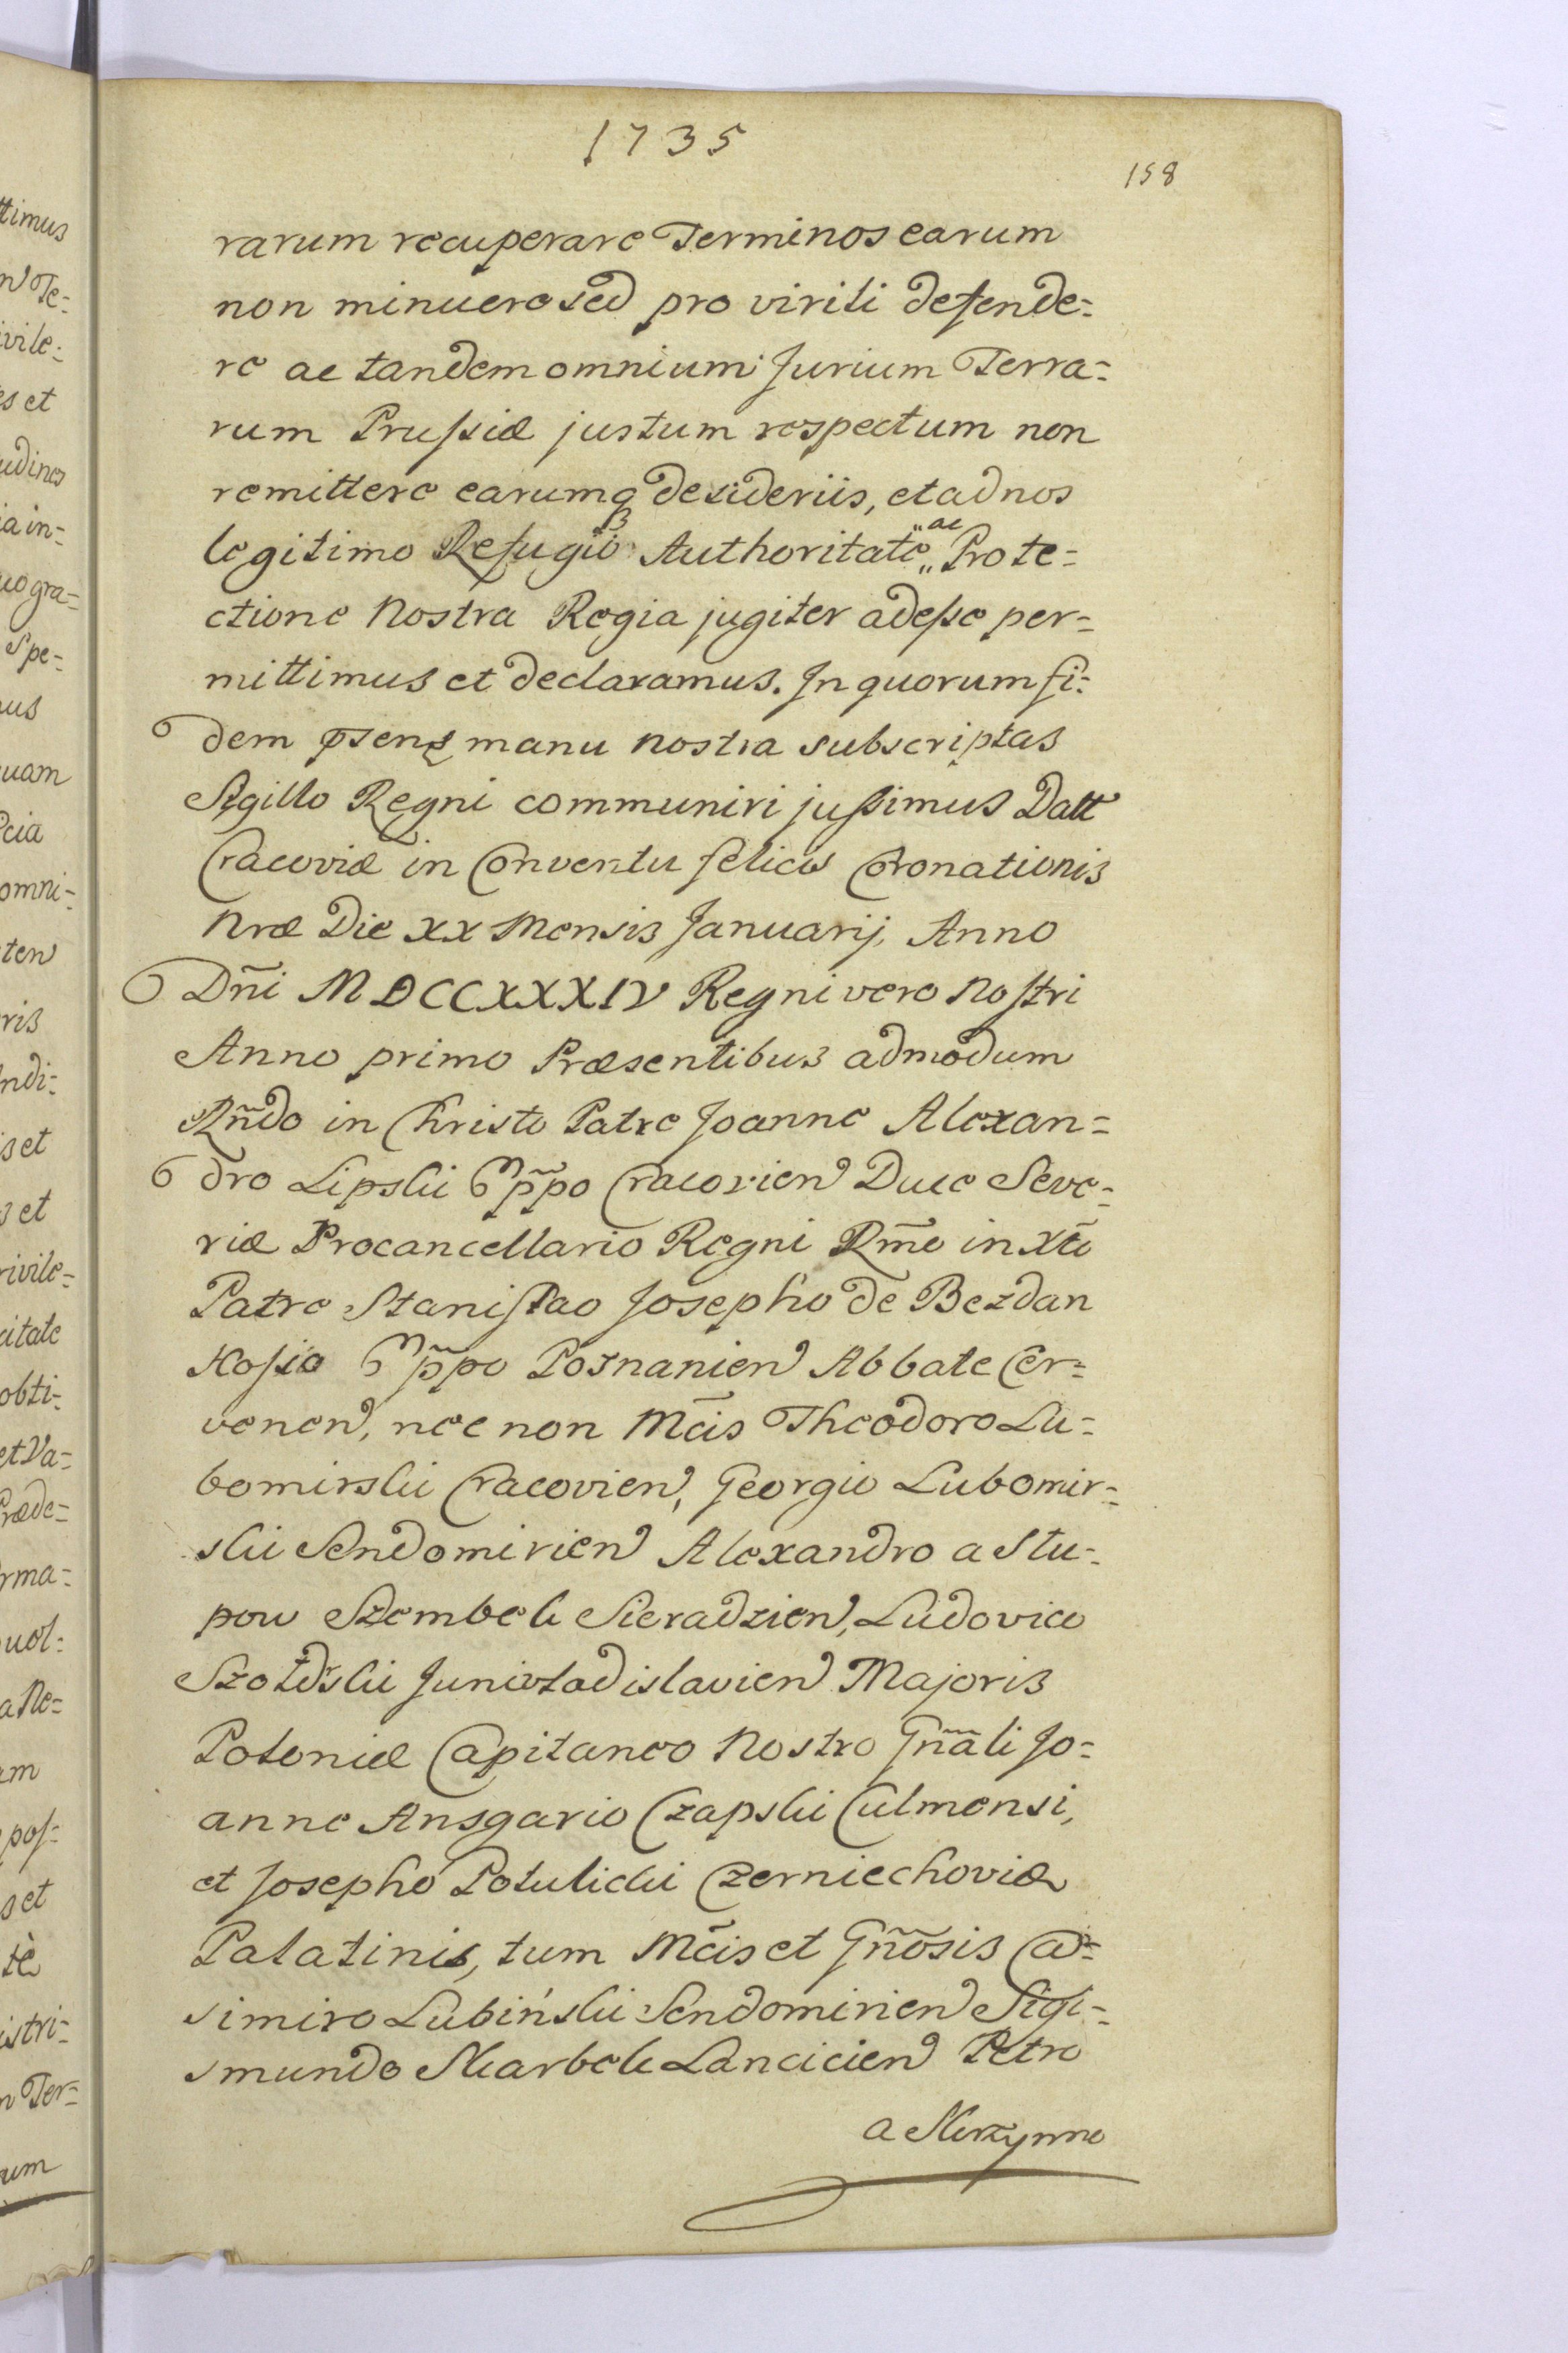 1735
158
rarum recuperare Terminos earum
non minuere sed pro virili defende=
re ac tandem omnium Jurium Terra=
rum Prussiæ justum respectum non
remittere earumq desideriis, et ad nos
legitimo Refugio Authoritate „ac„ Prote=
ctione Nostra Regia jugiter adesse per=
mittimus et declaramus. In quorum fi=
dem manu nostra subscriptas
Sigillo Regni communiri jussimus Datt
Cracoviæ in Conventu felicis Coronationis
Nræ Die XX Mensis Januarij, Anno
Dñi MDCCXXXIV Regni vero Nostri
Anno primo Præsentibus admodum
Rñdo in Christo Patre Joanne Alexan=
dro Lipski Cracovien Duce Seve=
riæ Procancellario Regni Rm̃o in Xt̃o
Patre Stanislao Josepho de Bezdan
Hosio Posnanien Abbate Cer=
venen, nec non Mc̃is Theodoro Lu=
bomirski Cracovien, Georgio Lubomir=
ski Sendomirien Alexandro a Slu=
pow Szembek Sieradzien, Ludovico
Szołdrski Juniwladislavien Majoris
Poloniæ Capitaneo Nostro Gñali Jo=
anne Ansgario Czapski Culmensi,
et Josepho Potulicki Czerniechoviæ
Palatinis, tum Mc̃is et Gñosis Ca=
simiro Lubiński Sendomirien Sigi=
smundo Skarbek Lancicien Petro
a Skrzynno
ttimus
n Te=
ivile=
s et
udines
ia in=
uo gra=
Spe=
us
uam
cia
omni=
ten
ris
ndi=
is et
s et
rivile=
citate
obti=
et Va=
Præde=
rma=
uol=
a Ne=
um
pos=
s et
tè
istri=
n Ter=
rum